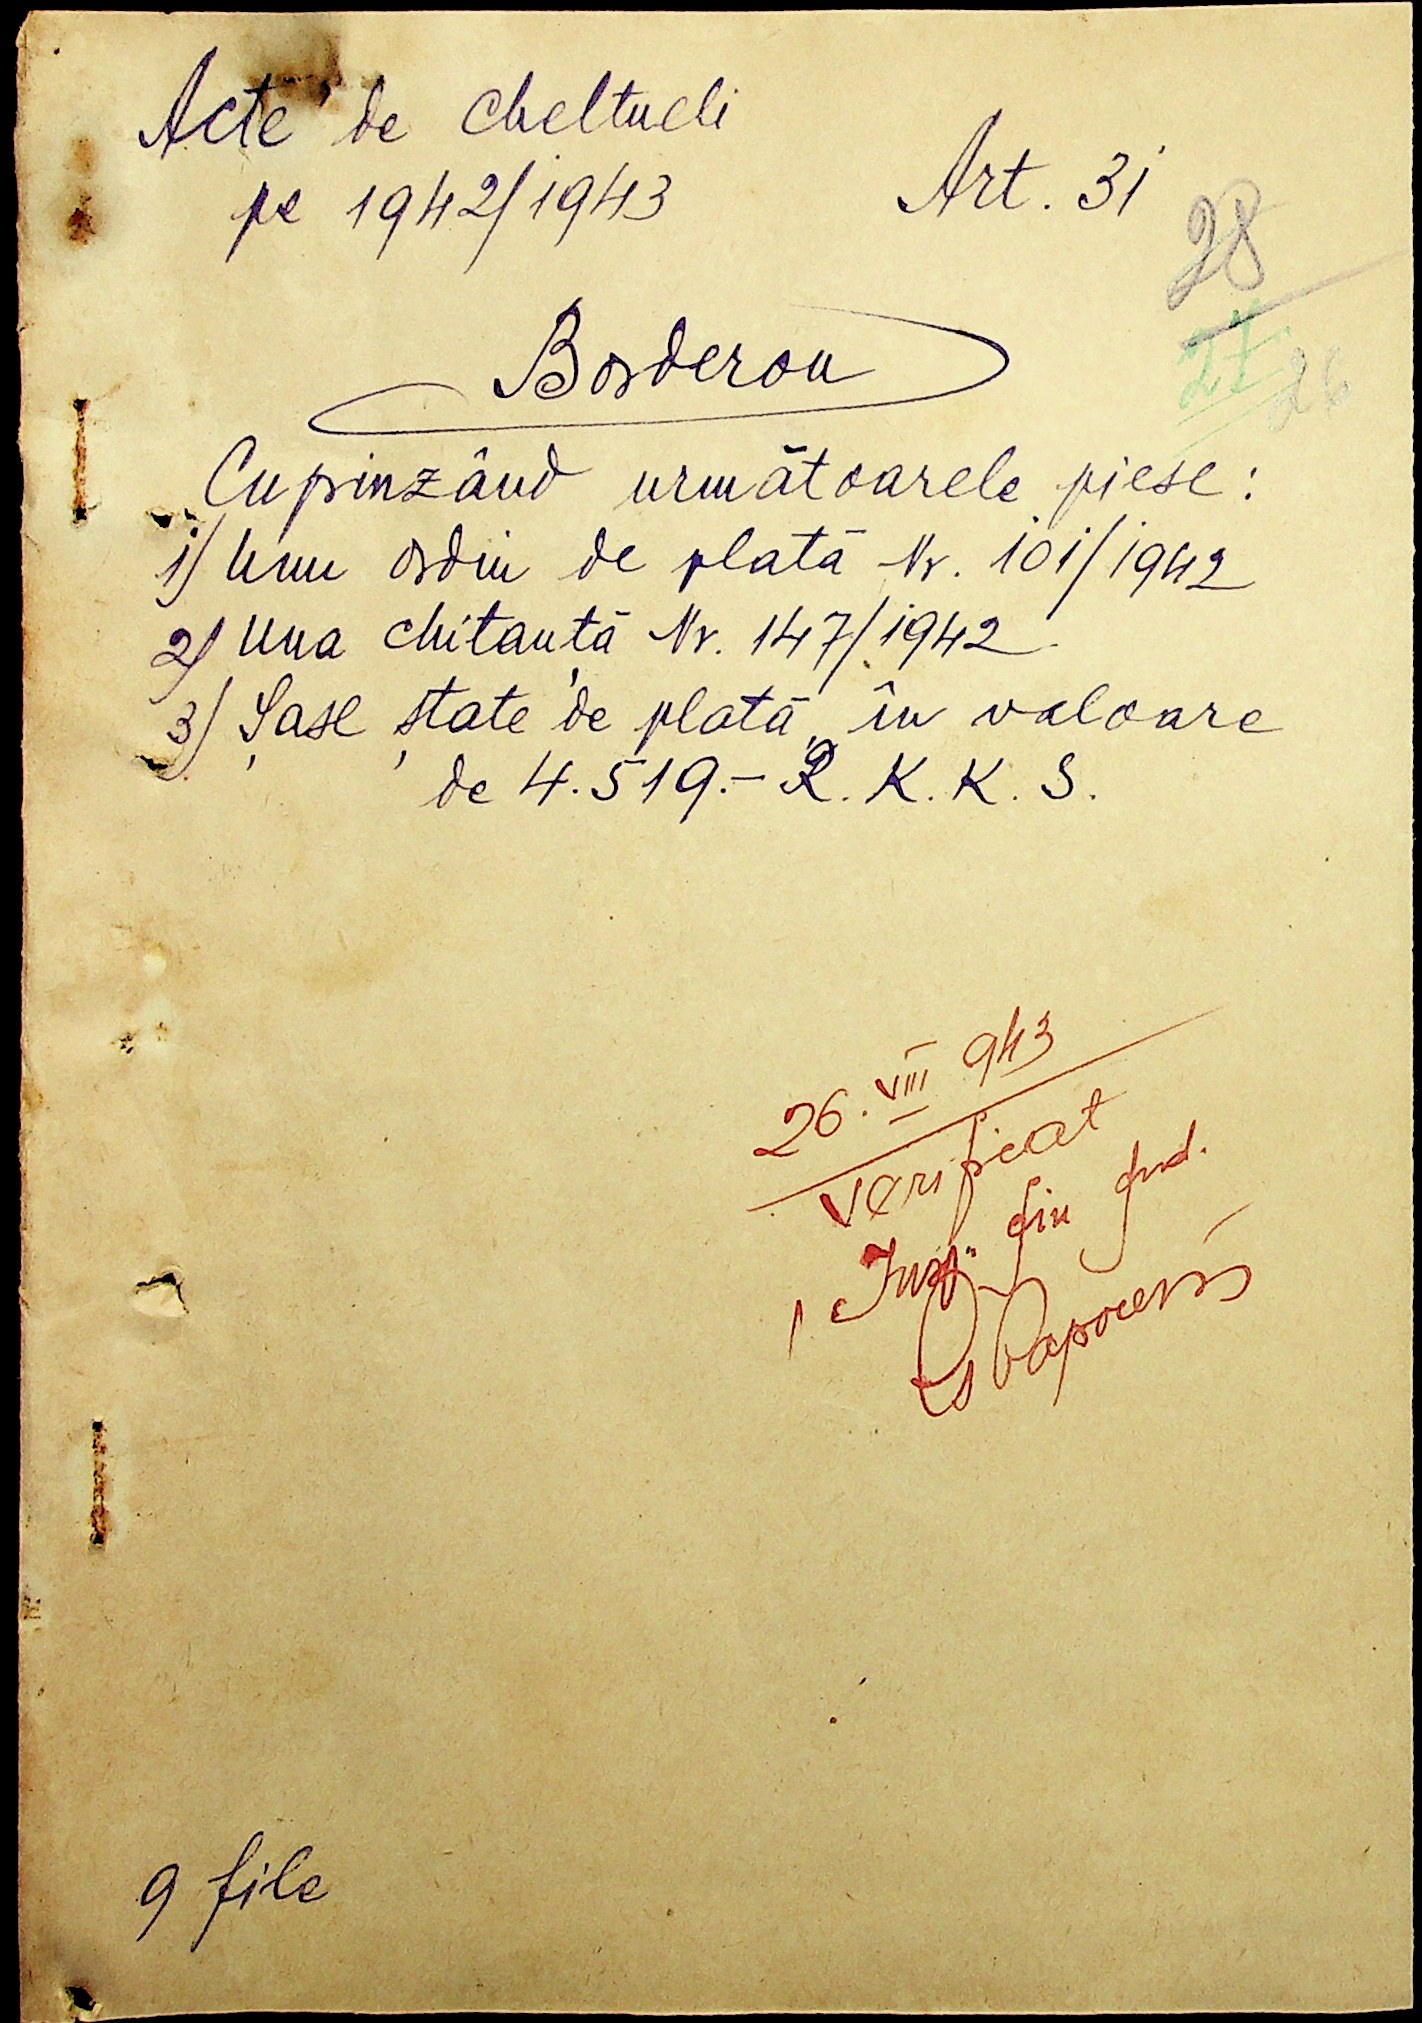 Acte de cheltueli
pe 1942/1943
Art. 31
28
27
26
Borderou
Cuprinzând următoarele piese:
1) Unu ordin de plată Nr. 101/1942
2) Una chitanță Nr. 147/1942
3) Șase state de plată, în valoare
de 4.519.- R. K. K. S.
26. VIII 943
Verificat
Insp. fin Jud.
9 file